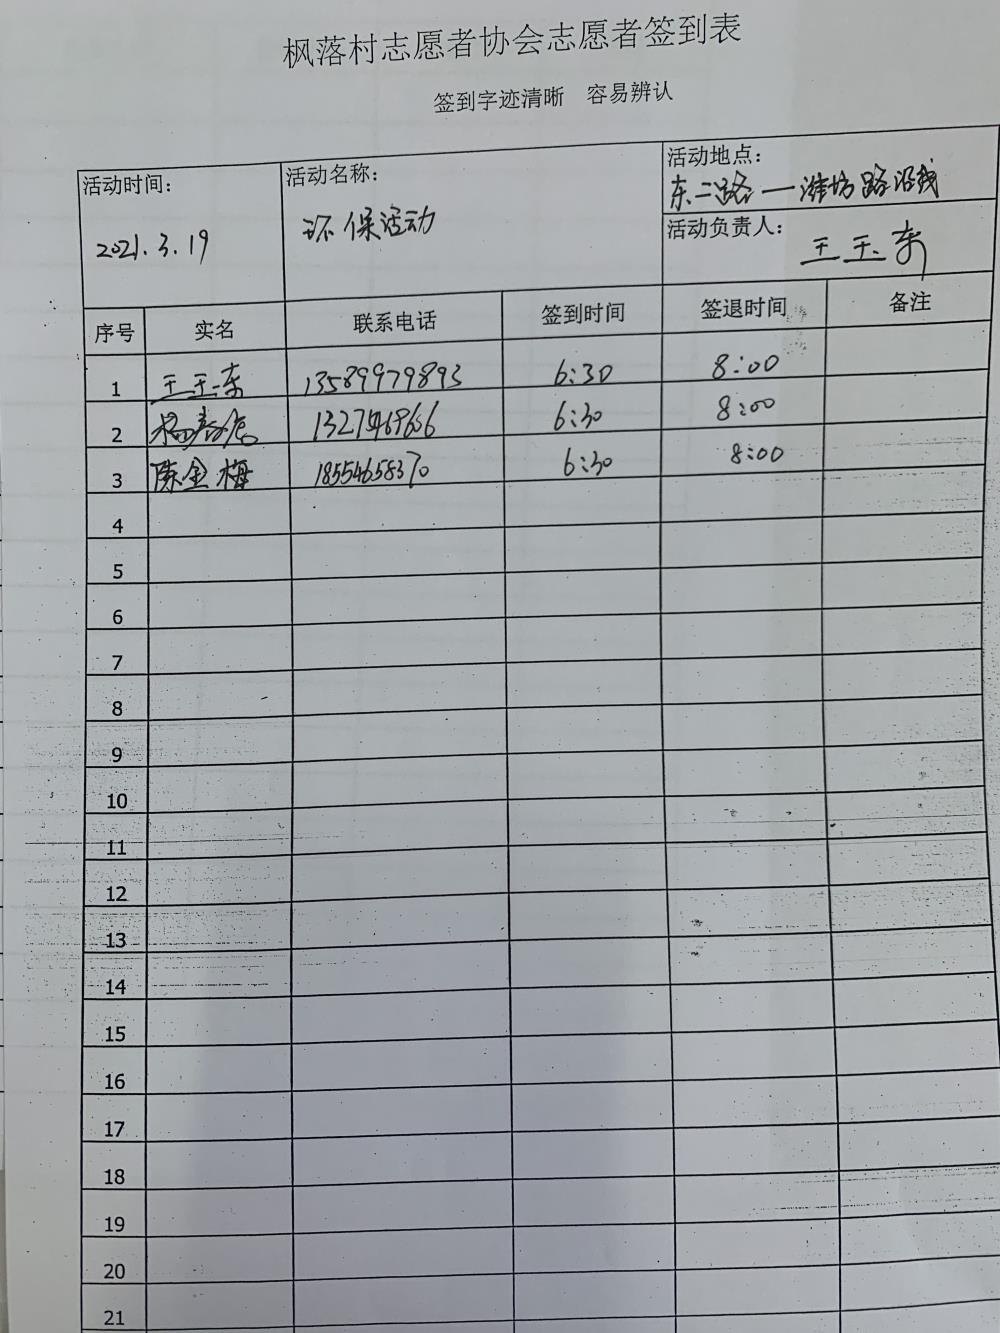 枫落村志愿者协会志愿者签到表
签到字迹清晰 容易辨认
活动时间: 活动名称: 活动地点:
东二路一潍坊路沿线
2021.3.19 环保活动
活动负责人: 王玉东
序号 实名 联系电话 签到时间 签退时间 备注
1 王玉东 13589979893 6:30 8:00
2 6:30 8:00
3 陈金梅 18554658370 6:30 8:00
4
5
6
7
8
9
10
11
12
13
14
15
16
17
18
19
20
21